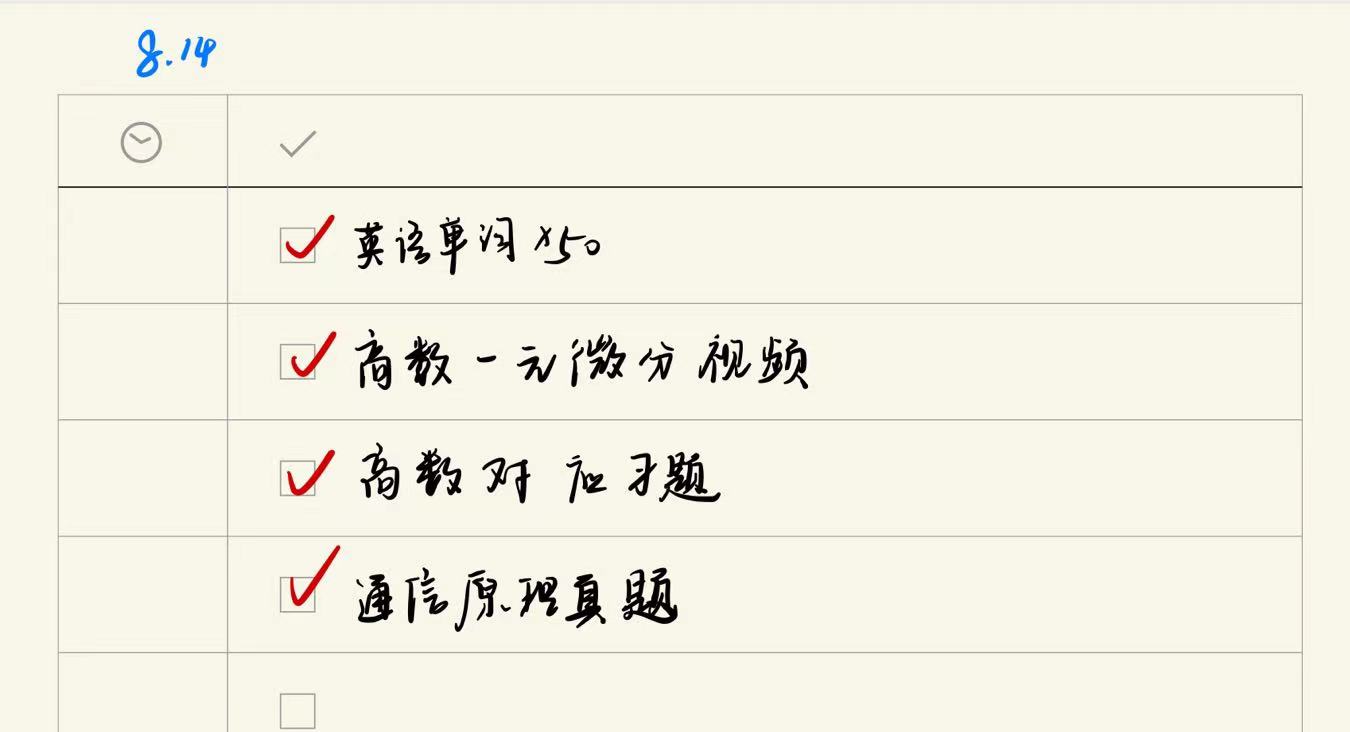 8.14
英语单词×50
高数一元微分视频
高数对应习题
通信原理真题